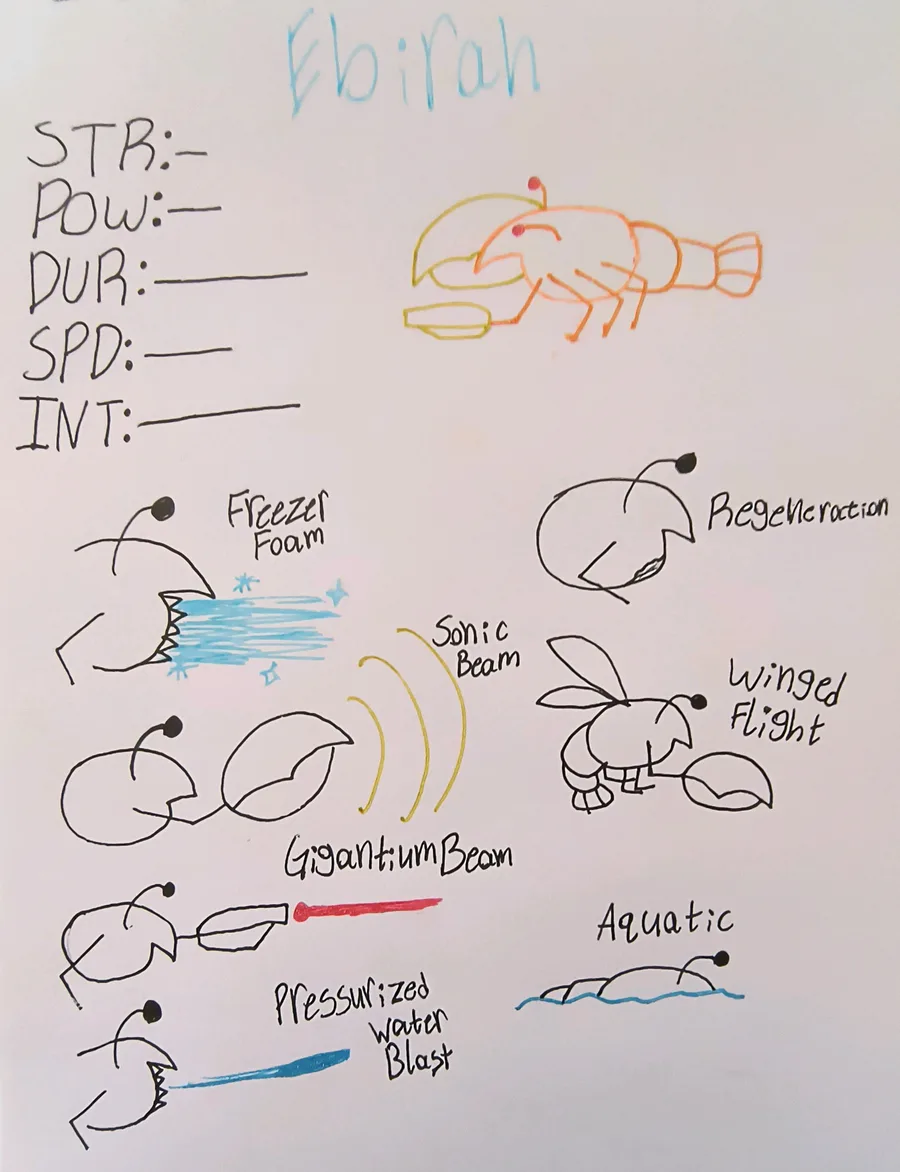 Ebirah
STR:-
POW:-
DUR:-
SPD:-
INT:-
Freezer
Foam
Regeneraction
Sonic
Beam
Winged
Flight
Gigantium Beam
Aquatic
Pressurized
Water
Blast